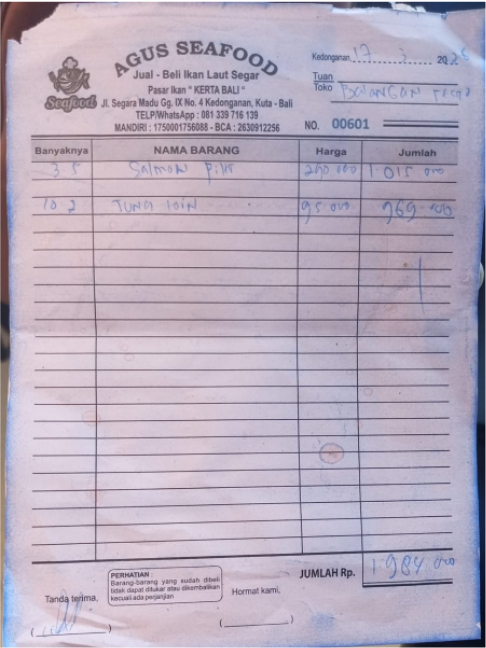 AGUS SEAFOOD
Seafood
Jual - Beli Ikan Laut Segar
Pasar Ikan " KERTA BALI "
Jl. Segara Madu Gg. IX No. 4 Kedonganan, Kuta - Bali
TELP/WhatsApp : 081 339 716 139
MANDIRI : 1750001756088 - BCA : 2630912256
Kedonganan, 17 3 20
Tuan
Toko BALANGAN
NO. 00601
Banyaknya NAMA BARANG Harga Jumlah
3 5 Salmon 290 000 1 015 000
10 2 TUNA LOIN 95 000 969 000
JUMLAH Rp. 1.984 000
PERHATIAN :
Barang-barang yang sudah dibeli
tidak dapat ditukar atau dikembalikan
kecuali ada perjanjian
Tanda terima, Hormat kami,